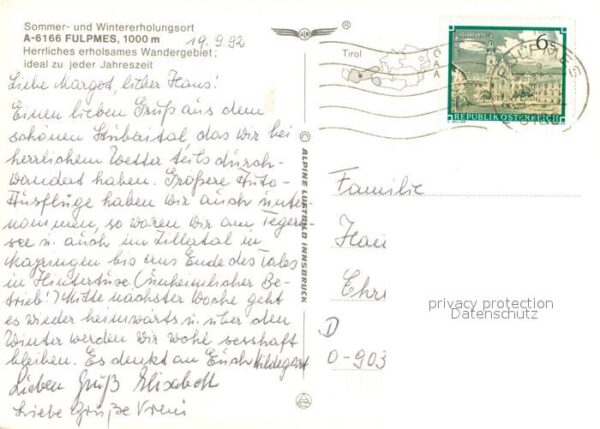 Sommer- und Wintererholungsort
A-6166 FULPMES, 1000 m
Herrliches erholsames Wandergebiet;
ideal zu jeder Jahreszeit
19.9.92
Liebe Margot, lieber Hans!
Einen lieben Gruß aus dem
schönen Stubaital, das wir bei
herrlichem Wetter teils durch-
wandert haben. Größere Auto-
Ausflüge haben wir auch unter-
nommen, so waren wir am Tegern-
see u. auch im Zillatal in
bis ans Ende des Tales
in Hintertuxe (unheimlicher Be-
trieb!) Mitte nächster Woche geht
es wieder heimwärts u. über den
Winter werden wir wohl sesshaft
bleiben. Es denkt an Euch Hildegard
Lieben Gruß Elisabeth
Liebe Grüße Vreni
Tirol
6S
REPUBLIK ÖSTERREICH
© ALPINE LUFTBILD INNSBRUCK
Familie
Han
Ehr
D
O-903
privacy protection
Datenschutz